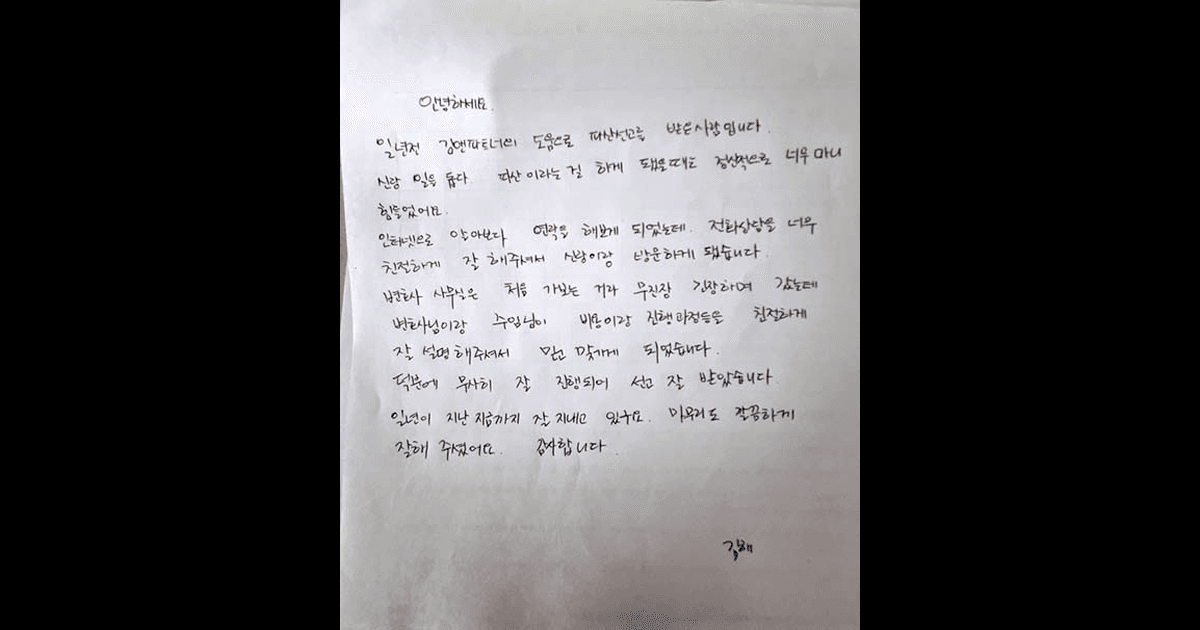 안녕하세요.
일년전 김앤파트너의 도움으로 파산선고를 받은사람입니다.
신랑 일을 돕다 파산이라는걸 하게 됐을때도 정신적으로 너무 마니
힘들었어요.
인터넷으로 알아보다 연락을 해보게 되었는데. 전화상담을 너무
친절하게 잘 해주셔서 신랑이랑 방문하게 됐습니다.
변호사 사무실은 처음 가보는 거라 무진장 긴장하며 갔는데
변호사님이랑 주임님이 비용이랑 진행과정등을 친절하게
잘 설명해주셔서 믿고 맞기게 되었습니다.
덕분에 무사히 잘 진행되어 선고 잘 받았습니다
일년이 지난 지금까지 잘 지내고 있구요. 마무리도 깔끔하게
잘해 주셨어요. 감사합니다.